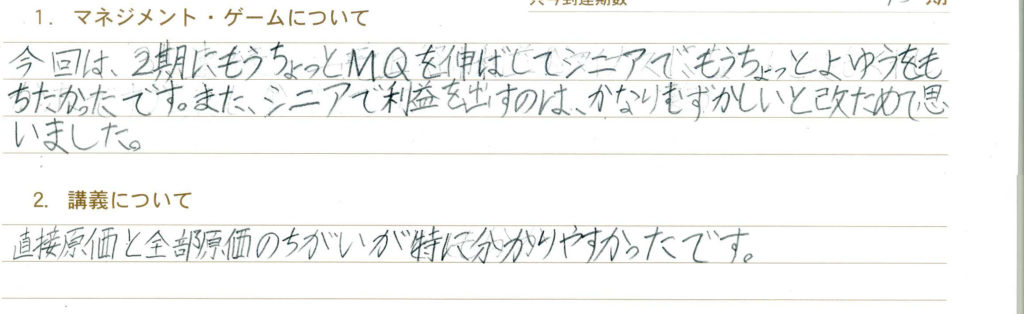 1. マネジメント・ゲームについて
今回は、2期にもうちょっとMQを伸ばしてシニアで、もうちょっとよゆうをも
ちたかったです。また、シニアで利益を出すのは、かなりむずかしいと改ためて思
いました。
2. 講義について
直接原価と全部原価のちがいが特に分かりやすかったです。